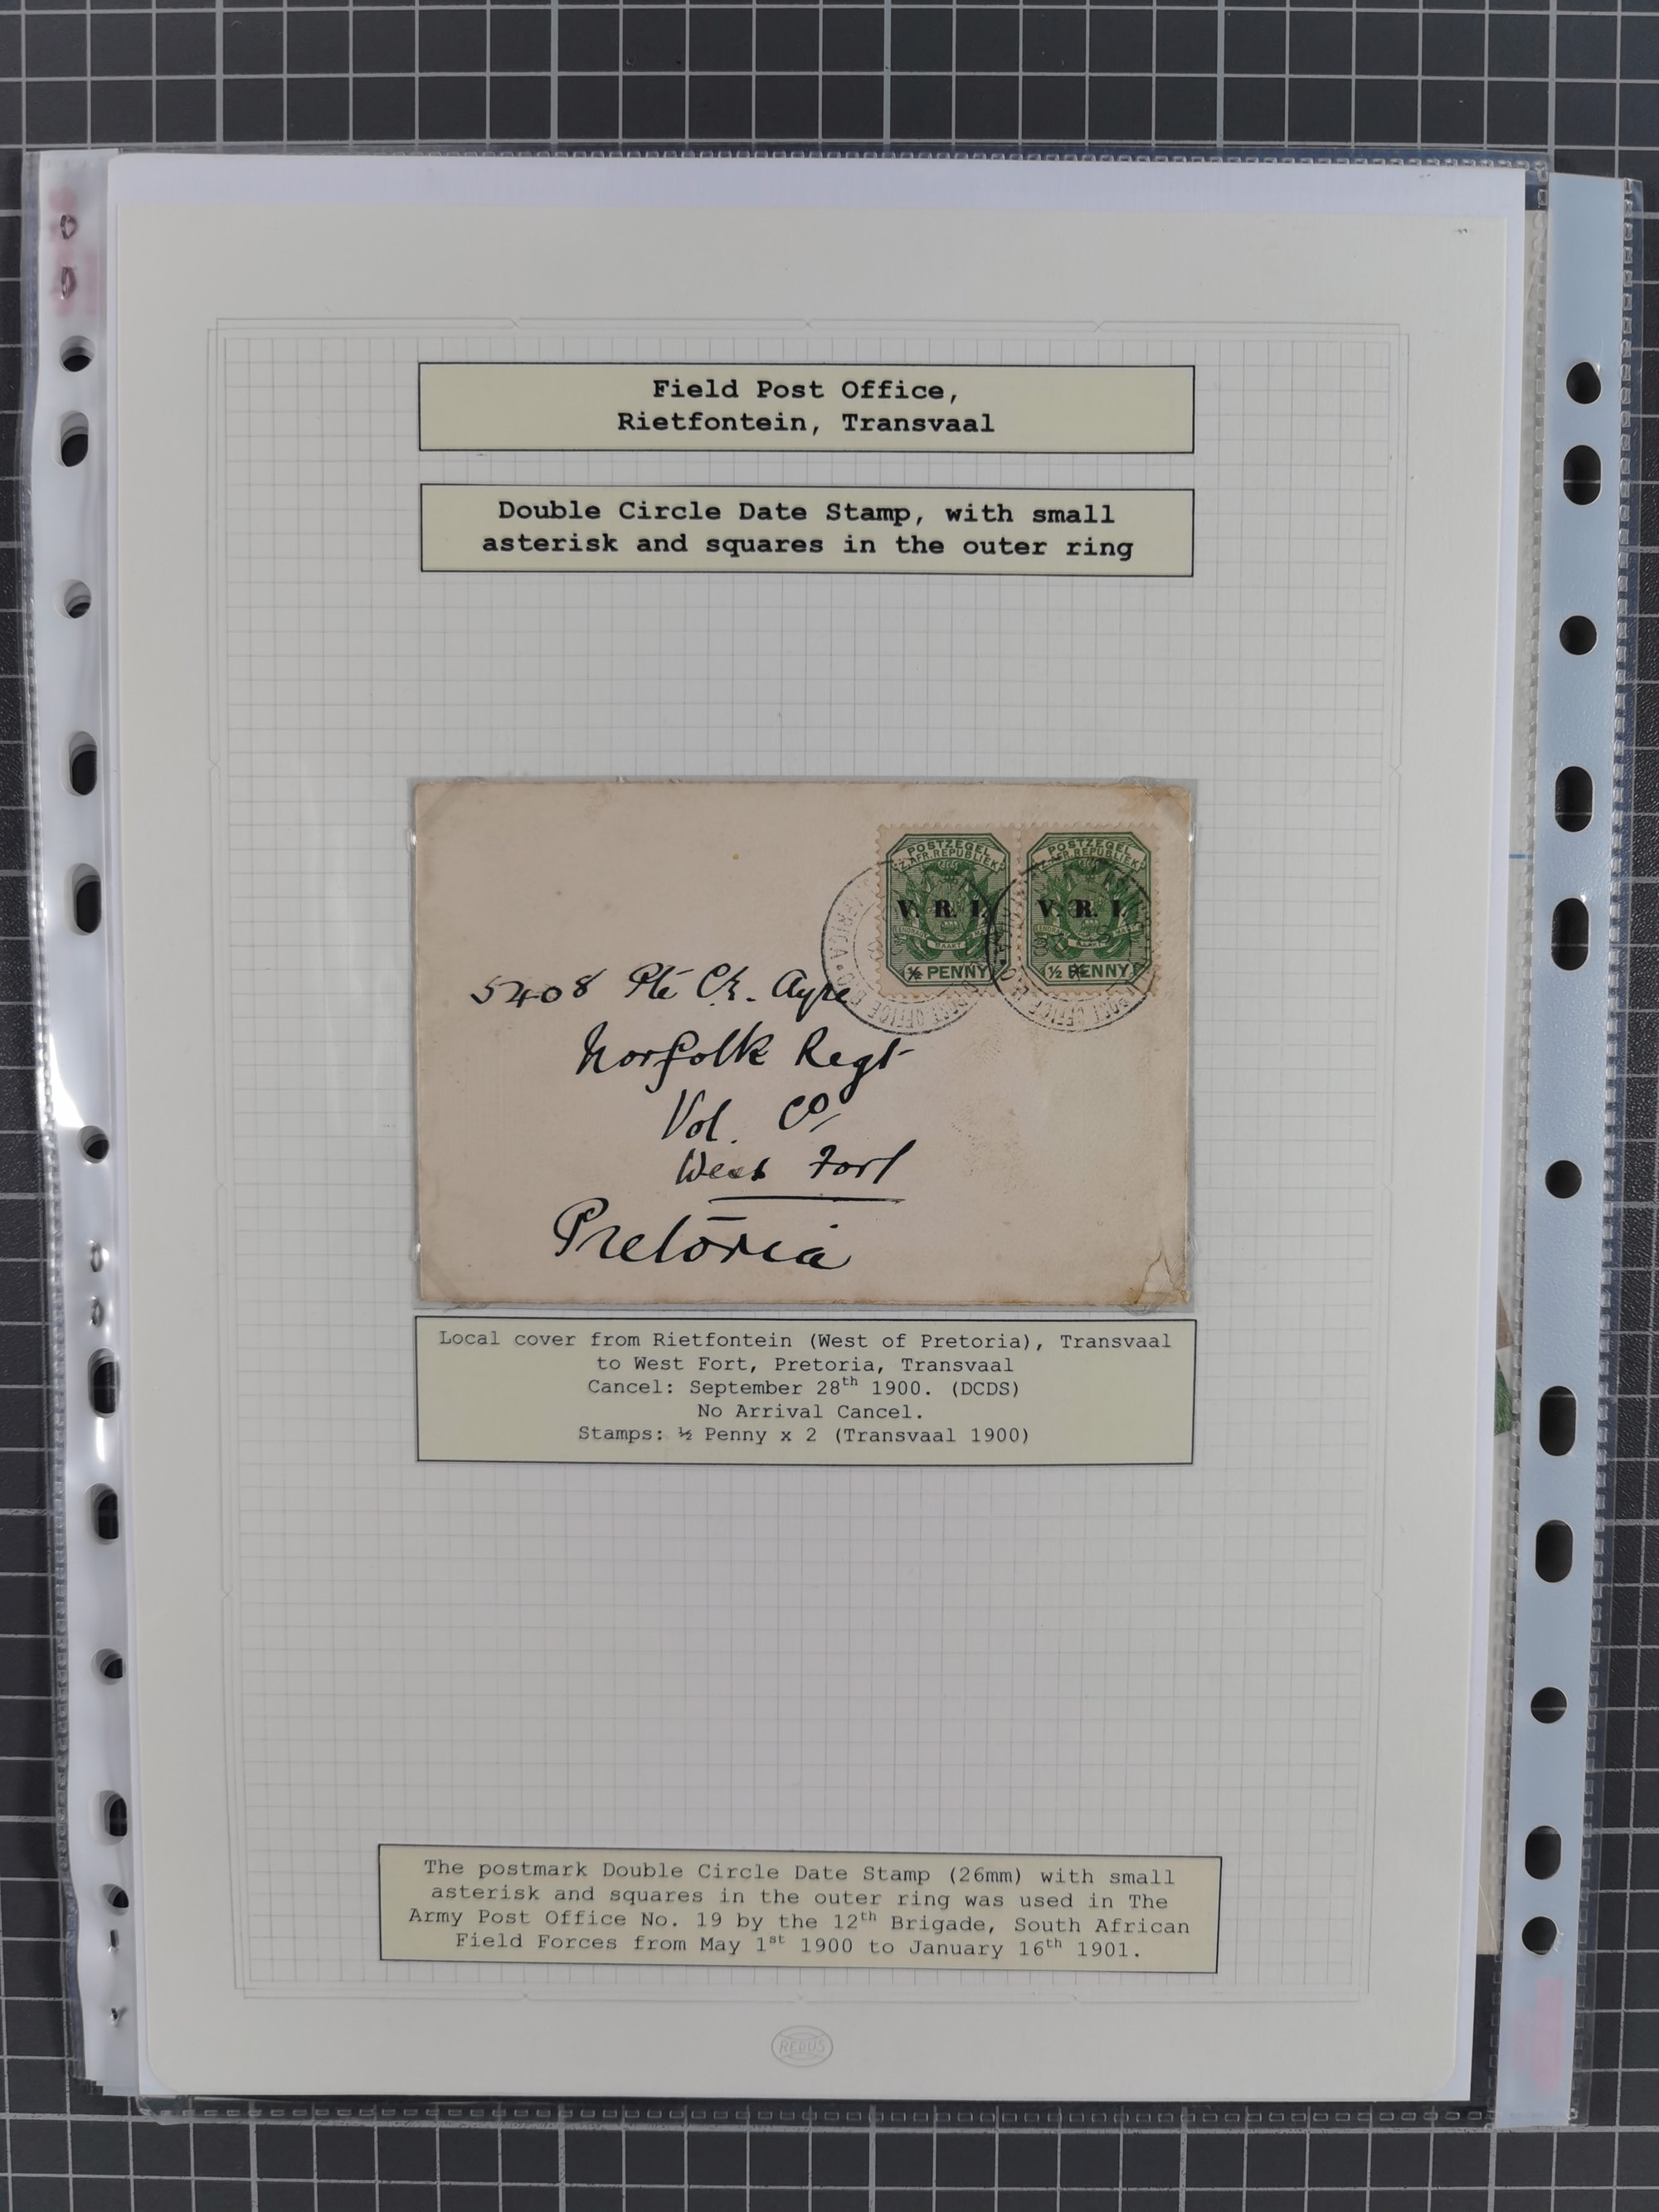 Field Post Office,
Rietfontein, Transvaal
Double Circle Date Stamp, with small
asterisk and squares in the outer ring
POSTZEGEL
Z.AFR.REPUBLIEK
V. R. I.
EENDRAGT MAAKT
½ PENNY
POSTZEGEL
Z.AFR.REPUBLIEK
V. R. I.
½ PENNY
AFRICA
POST OFFICE
POST OFFICE
5408 Pte Ch. Ayre
Norfolk Regt
Vol. Co/
West Fort
Pretoria
Local cover from Rietfontein (West of Pretoria), Transvaal
to West Fort, Pretoria, Transvaal
Cancel: September 28th 1900. (DCDS)
No Arrival Cancel.
Stamps: ½ Penny x 2 (Transvaal 1900)
The postmark Double Circle Date Stamp (26mm) with small
asterisk and squares in the outer ring was used in The
Army Post Office No. 19 by the 12th Brigade, South African
Field Forces from May 1st 1900 to January 16th 1901.